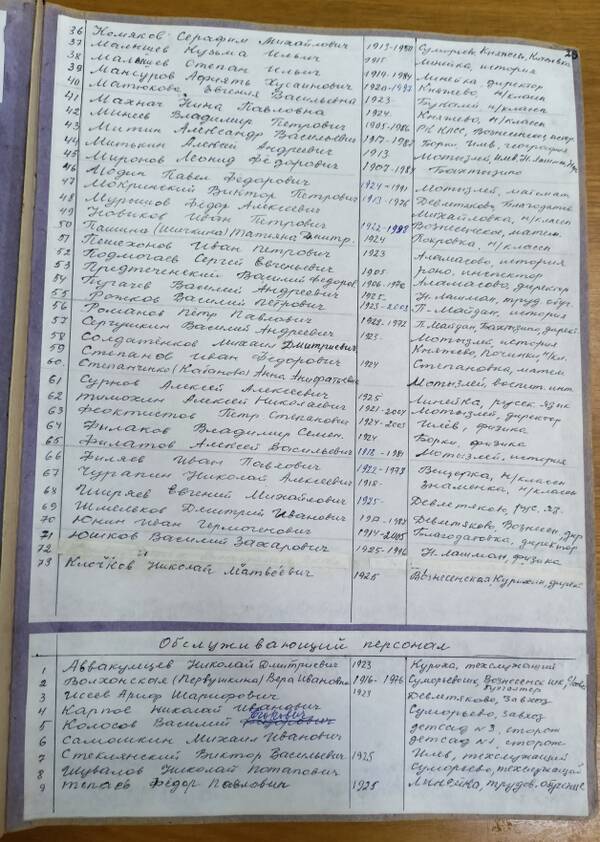 28
36 Комяков Серафим Михайлович 1913-1980 Суморьево, Княжево, Китовка
37 Малышев Кузьма Ильич 1915 Линейка, история
38 Малышев Степан Ильич 1914-1984 Линейка директор
39 Мансуров Хусаинович 1920-1993 Княжево, н/класс
40 Матюкова Евгения Васильевна 1923 Букалей, н/классы
41 Махнач Нина Павловна 1924 Княжево, н/класс
42 Минеев Владимир Петрович 1905-1986 РК КПСС, Вознесенск
43 Митин Александр Васильевич 1917-1982 Борки, Илев, география
44 Митькин Алексей Андреевич 1913 Мотызлей, Илев, Н.Лашман
45 Миронов Леонид Федорович 1907-1984 Бахтызино
46 Модин Павел Федорович
47 Мокринский Виктор Петрович 1924-1991 Мотызлей, математ
48 Мурышов Федор Алексеевич 1913-1976 Девлетяково, Благодатов
49 Новиков Иван Петрович Михайловка, н/классы
50 Пашина (Шишкина) Татьяна Дмитр. 1922-1998 Вознесенское, матем.
51 Пешехонов Иван Петрович 1924 Покровка, н/классы
52 Подмогаев Сергей Евгеньевич 1923 Аламасово, история
53 Предтеченский Василий Федоров 1905 роно, инспектор
54 Пугачев Василий Андреевич 1906-1970 Аламасово, директор
55 Рожков Василий Петрович 1925 Н.Лашман, труд. обуч.
56 Романов Петр Павлович 1925-2003 П-Майдан, история
57 Сергушкин Василий Андреевич 1928-1972 П.Майдан, Бахтызино, дирек
58 Солдатёнков Михаил Дмитриевич 1923 Мотызл, история
59 Степанов Иван Федорович Княжево, Починки н/кл.
60 Степанченко (Катанова) Анна Анифатьевна 1924 Степановка, матем
61 Сурнов Алексей Алексеевич Мотызлей, воспит. инт
62 Тимохин Алексей Николаевич 1925 Линейка, русск. язык
63 Феоктистов Петр Степанович 1921-2001 Мотызлей, директор
64 Фылаков Владимир Семен. 1924-2003 Илёв, физика
65 Филатов Алексей Васильевич 1924 Борки, физика
66 Филяев Иван Павлович 1918-1981 Мотызлей, история
67 Чурапин Николай Алексеевич 1922-1973 Вещерка, н/классы
68 Ширяев Евгений Михайлович 1918- Знаменка, н/классы
69 Шмельков Дмитрий Иванович 1925- Девлетяков, рус. яз.
70 Юнин Иван Гермогенович Девлетяково, Вознесен, дир
71 Юшков Василий Захарович 1914-2005 Благодатовка, директор
72 1925-1996 Н.Лашман, физика
73 Клочков Николай Матвеевич 1925 Вознесенская Курихин, дирек
Обслуживающий персонал
1 Аввакумцев Николай Дмитриевич 1923 Куриха, техслужащий
2 Волхонская (Первушкина) Вера Ивановна 1916-1976 Суморьевск, Вознесенск
бухгалтер
3 Исеев Ариф Шарифович 1923 Девлетяково, завхоз
4 Карпов Николай Иванович Суморьево, завхоз
5 Колосов Василий детсад №3, сторож
6 Самошкин Михаил Иванович детсад №1, сторож
7 Стеблянский Виктор Васильевич 1925 Илев, техслужащий
8 Шувалов Николай Потапович Суморьево, техслужащий
9 Тепаев Федор Павлович 1925 Линейка, трудов. обучение